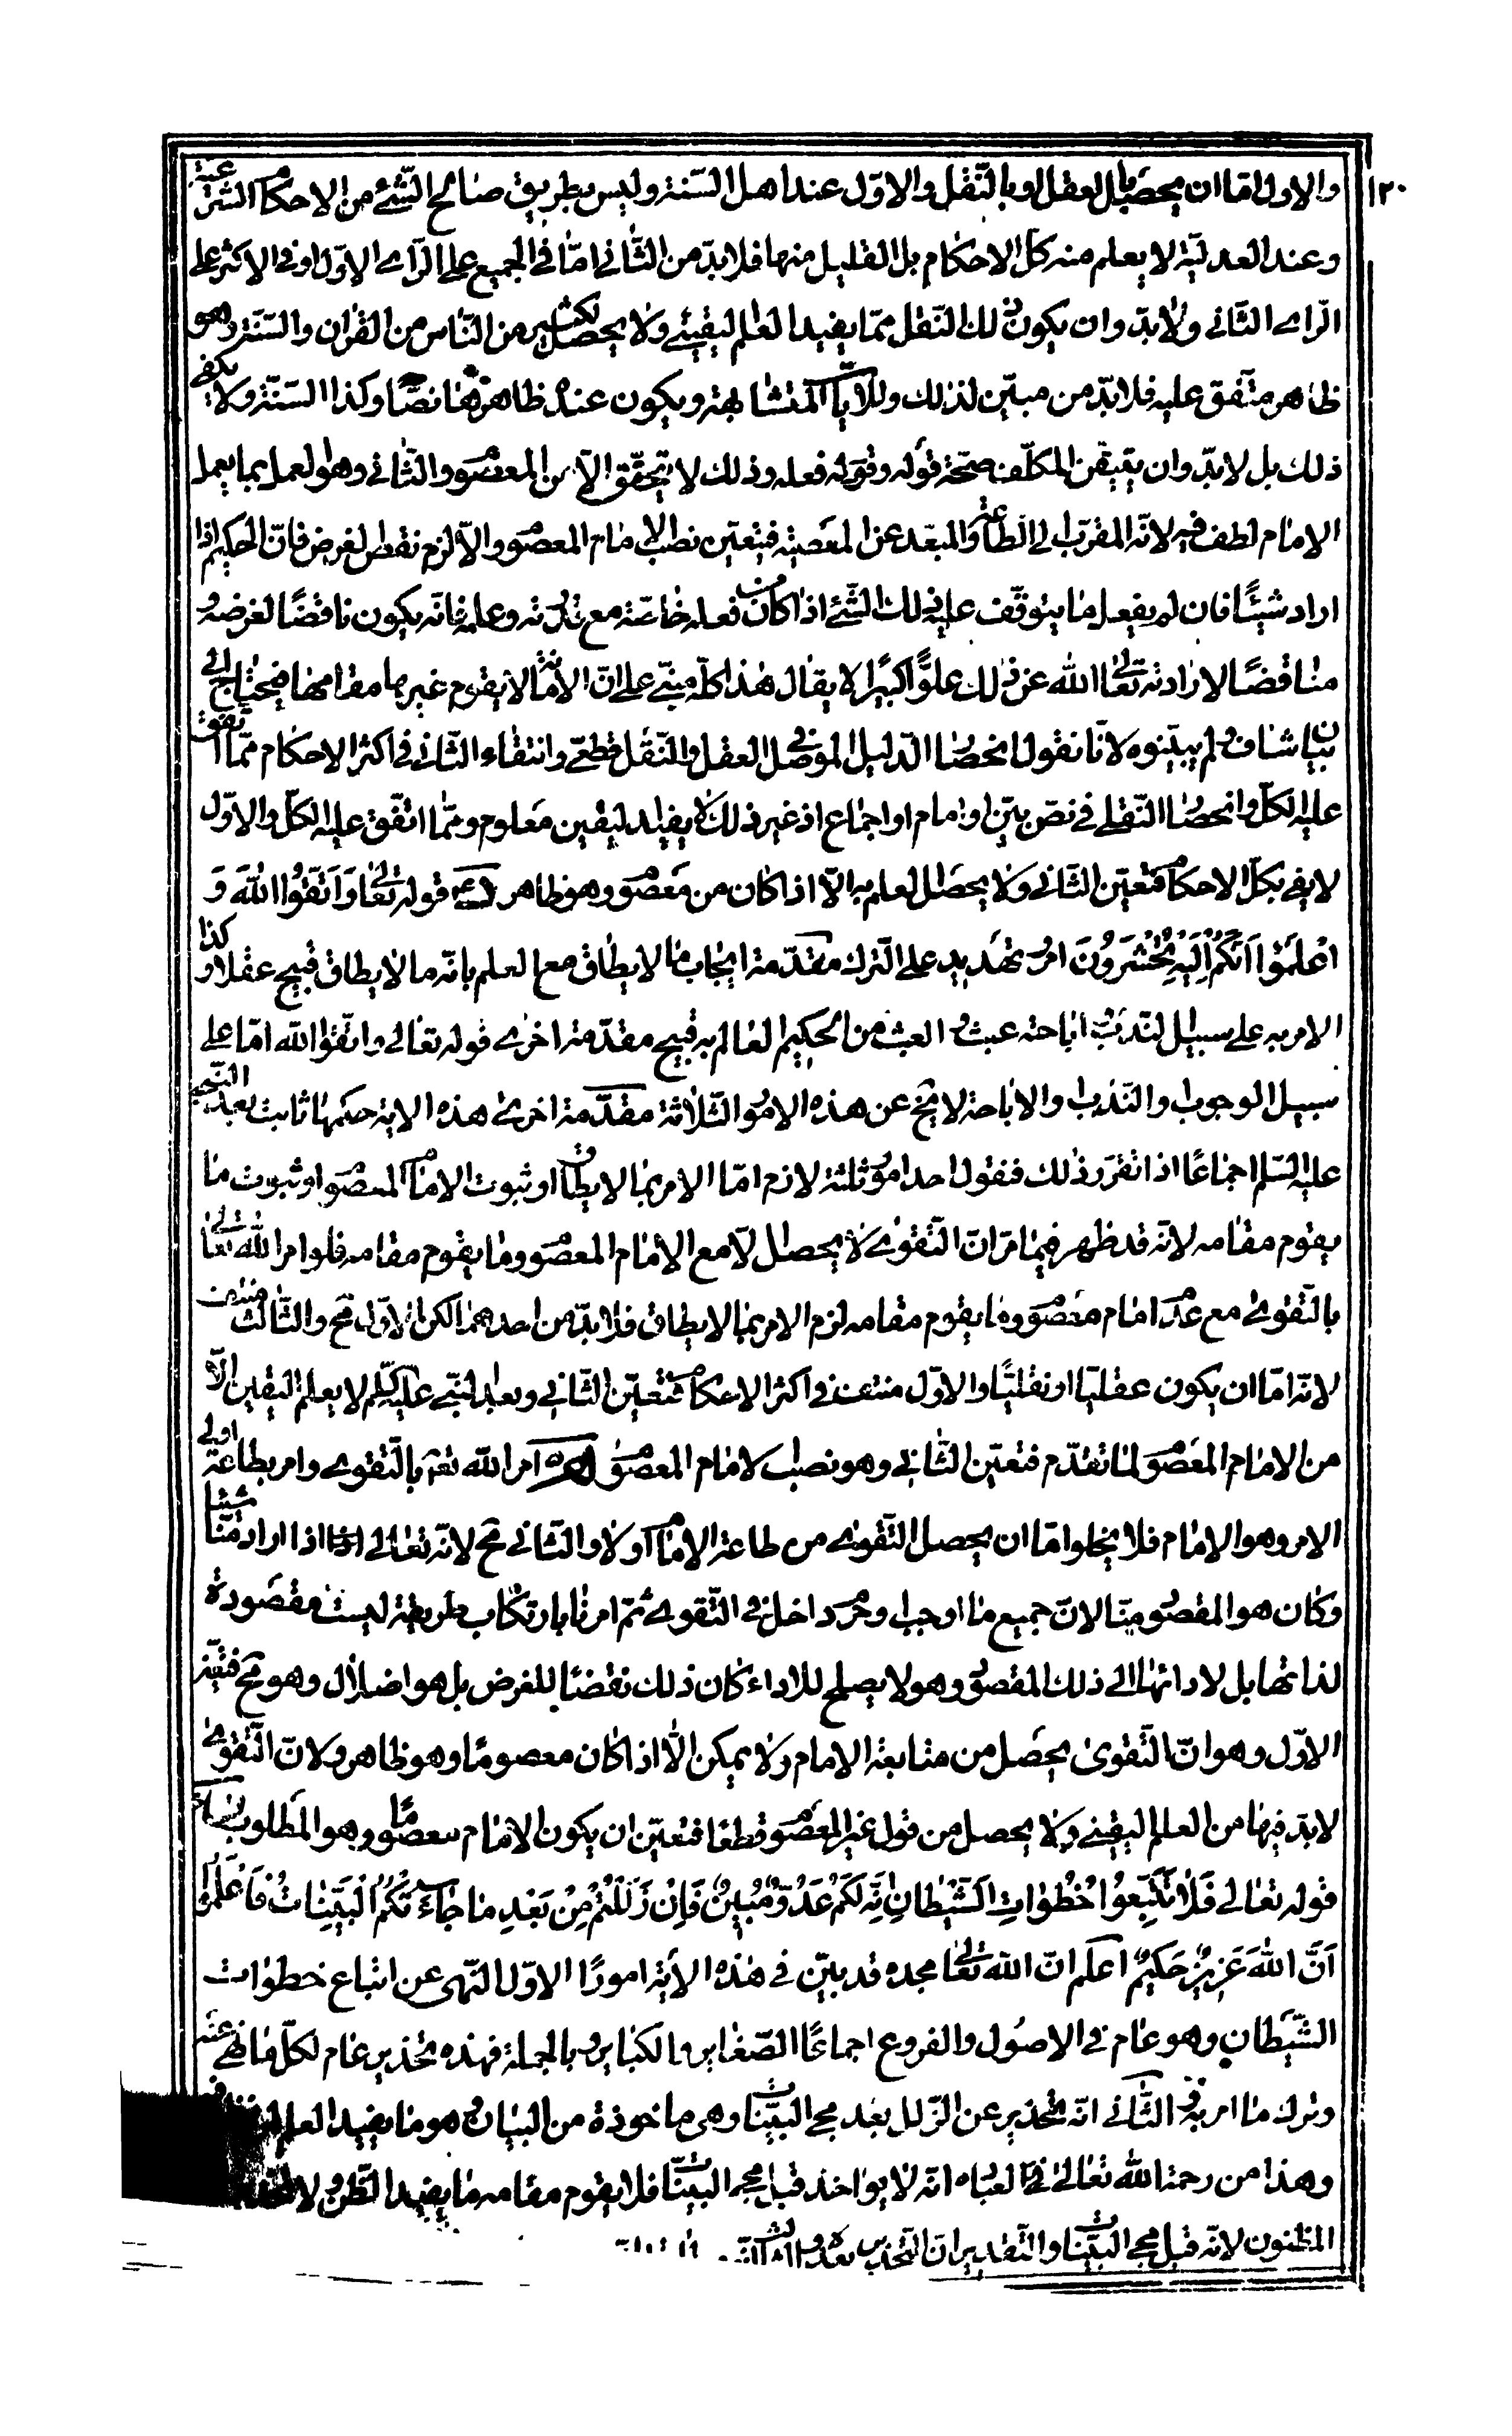 ١٢٠
والاول اما ان يحصل بالعقل او بالنقل والاوّل عند اهل السّنة وليس بطريق صالح لشئ من الاحكام الشرعية
وعند العدليّة لا يعلم منه كل الاحكام بل القليل منها فلا بدّ من الثّانى امّا فى الجميع على الرّاى الاوّل او فى الاكثر على
الرّاى الثّانى ولا بدّ وان يكون ذلك النّقل ممّا يفيد العلم اليقينى ولا يحصل لكثير من النّاس من القران والسّنة وهو
ظاهر متّفق عليه فلا بدّ من مبيّن لذلك وللايات المتشابهة ويكون عنده ظاهرها نصّا وكذا السّنة ولا يكفى
ذلك بل لا بدّ وان يتيقن المكلّف صحّة قوله وقوله فعله وذلك لا يتحقّق الّا من المعصوم والثّانى وهو العمل بما يعمل
الامام لطف فيه لانّه المقرّب الى الطّاعة والمبعّد عن المعصية فيتعيّن نصب الامام المعصوم والّا لزم نقض الغرض فانّ الحكيم اذا
اراد شيئًا فان لم يفعل ما يتوقّف عليه ذلك الشّئ اذا كان من فعله خاصّة مع قدرته وعلمه فانّه يكون ناقضًا لغرضه
مناقضًا لارادته تعالى الله عن ذلك علوًّا كبيرًا لا يقال هذا كلّه مبنىّ على انّ الامامة لا يقوم غيرها مقامها فيحتاج الى
بيان شاف ولم يبيّنوه لانّا نقول انحصار الدّليل الموصل فى العقل والنّقل قطعىّ وانتفاء الثّانى فى اكثر الاحكام ممّا اتفق
عليه الكلّ وانحصار النّقلى فى نصّ بيّن او امام او اجماع اذ غير ذلك لا يفيد اليقين معلوم وممّا اتّفق عليه الكلّ والاوّل
لا يفى بكلّ الاحكام فتعيّن الثّانى ولا يحصل العلم به الّا اذا كان من معصوم وهو ظاهر قوله تعالى وَاتَّقُوا اللهَ وَ
اعْلَمُوا اَنَّكُمْ اِلَيْهِ تُحْشَرُونَ امر بتهديد على التّرك مقدّمة ايجاب ما لا يطاق مع العلم بانّه ما لا يطاق قبيح عقلا وكذا
الامر به على سبيل النّدب اباحته عبث والعبث من الحكيم العالم به قبيح مقدّمة اخرى قوله تعالى واتّقوا الله امّا على
سبيل الوجوب والنّدب والاباحة لا يخ عن هذه الامور الثّلاثة مقدّمة اخرى هذه الاية حكمها ثابت بعد النّبى
عليه السّلم اجماعًا اذا تقرّر ذلك فنقول احد امور ثلثة لازم امّا الامر بما لا يطاق او ثبوت الامام المعصوم او ثبوت ما
يقوم مقامه لانّه قد ظهر فيما مرّ انّ التّقوى لا يحصل الّا مع الامام المعصوم وما يقوم مقامه فلو امر الله تعالى
بالتّقوى مع عدم امام معصوم وما يقوم مقامه لزم الامر بما لا يطاق فلا بدّ من احدهما لكن الاوّل مح والثّالث منتف
لانّه امّا ان يكون عقليّا او نقليًّا والاوّل منتف فى اكثر الاحكام فتعيّن الثّانى وبعد النّبى عليه السّلم لا يعلم اليقين الّا
من الامام المعصوم لما تقدّم فتعيّن الثّانى وهو نصب الامام المعصوم امر الله تعم بالتّقوى وامر بطاعة اولى
الامر وهو الامام فلا يخلو امّا ان يحصل التّقوى من طاعة الامام او لا والثّانى مح لانّه تعالى اذا اراد منّا شيئا
وكان هو المقصود منّا لانّ جميع ما اوجب وحرّم داخل فى التّقوى ثمّ امرنا بارتكاب طريقة ليست مقصودة
لذاتها بل لادائها الى ذلك المقصود وهو لا يصلح للاداء كان ذلك نقضًا للغرض بل هو اضلال وهو مح فتعيّن
الاوّل وهو انّ التّقوى يحصل من متابعة الامام ولا يمكن الّا اذا كان معصومًا وهو ظاهر ولانّ التّقوى
لا بد فيها من العلم اليقينى ولا يحصل من قول غير المعصوم قطعًا فتعيّن ان يكون الامام معصومًا وهو المطلوب
قوله تعالى فَلَا تَتَّبِعُوا خُطُوَاتِ الشَّيْطَانِ اِنَّهُ لَكُمْ عَدُوٌّ مُبِينٌ فَاِنْ زَلَلْتُمْ مِنْ بَعْدِ مَا جَاءَتْكُمُ الْبَيِّنَاتُ فَاعْلَمُوا
اَنَّ اللهَ عَزِيزٌ حَكِيمٌ اعلم انّ الله تعالى مجده قد بيّن فى هذه الاية امورًا الاوّل النّهى عن اتباع خطوات
الشّيطان وهو عام فى الاصول والفروع اجماعًا الصّغاير والكباير وبالجملة فهذه تحذير عام لكلّ ما نهى عنه
وترك ما امر به الثّانى انّه تحذير عن الزّلل بعد مجئ البيّنات وهى ماخوذة من البيان وهو ما يفيد العلم
وهذا من رحمة الله تعالى العباد انّه لا يواخذ قبل مجئ البيّنات فلا يقوم مقامه ما يفيد الظّن و
المظنون لانّه قبل مجئ البيّنات والتّقدير انّ التّحذير بعده